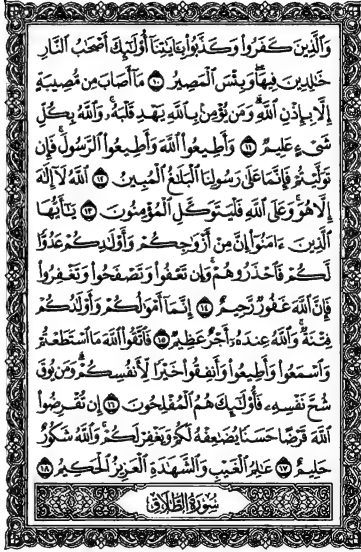 وَالَّذِينَ كَفَرُوا وَكَذَّبُوا بِـَٔايَٰتِنَا أُوْلَٰٓئِكَ أَصْحَٰبُ النَّارِ
خَٰلِدِينَ فِيهَا وَبِئْسَ الْمَصِيرُ ١٠ مَا أَصَابَ مِن مُّصِيبَةٍ
إِلَّا بِإِذْنِ اللَّهِ وَمَن يُؤْمِنۢ بِاللَّهِ يَهْدِ قَلْبَهُۥ وَاللَّهُ بِكُلِّ
شَيْءٍ عَلِيمٌ ١١ وَأَطِيعُوا اللَّهَ وَأَطِيعُوا الرَّسُولَ فَإِن
تَوَلَّيْتُمْ فَإِنَّمَا عَلَىٰ رَسُولِنَا الْبَلَٰغُ الْمُبِينُ ١٢ اللَّهُ لَا إِلَٰهَ
إِلَّا هُوَ وَعَلَى اللَّهِ فَلْيَتَوَكَّلِ الْمُؤْمِنُونَ ١٣ يَٰٓأَيُّهَا
الَّذِينَ ءَامَنُوا إِنَّ مِنْ أَزْوَٰجِكُمْ وَأَوْلَٰدِكُمْ عَدُوًّا
لَّكُمْ فَاحْذَرُوهُمْ وَإِن تَعْفُوا وَتَصْفَحُوا وَتَغْفِرُوا
فَإِنَّ اللَّهَ غَفُورٌ رَّحِيمٌ ١٤ إِنَّمَا أَمْوَٰلُكُمْ وَأَوْلَٰدُكُمْ
فِتْنَةٌ وَاللَّهُ عِندَهُۥ أَجْرٌ عَظِيمٌ ١٥ فَاتَّقُوا اللَّهَ مَا اسْتَطَعْتُمْ
وَاسْمَعُوا وَأَطِيعُوا وَأَنفِقُوا خَيْرًا لِّأَنفُسِكُمْ وَمَن يُوقَ
شُحَّ نَفْسِهِۦ فَأُوْلَٰٓئِكَ هُمُ الْمُفْلِحُونَ ١٦ إِن تُقْرِضُوا
اللَّهَ قَرْضًا حَسَنًا يُضَٰعِفْهُ لَكُمْ وَيَغْفِرْ لَكُمْ وَاللَّهُ شَكُورٌ
حَلِيمٌ ١٧ عَٰلِمُ الْغَيْبِ وَالشَّهَٰدَةِ الْعَزِيزُ الْحَكِيمُ ١٨
سُورَةُ الطَّلَاقِ